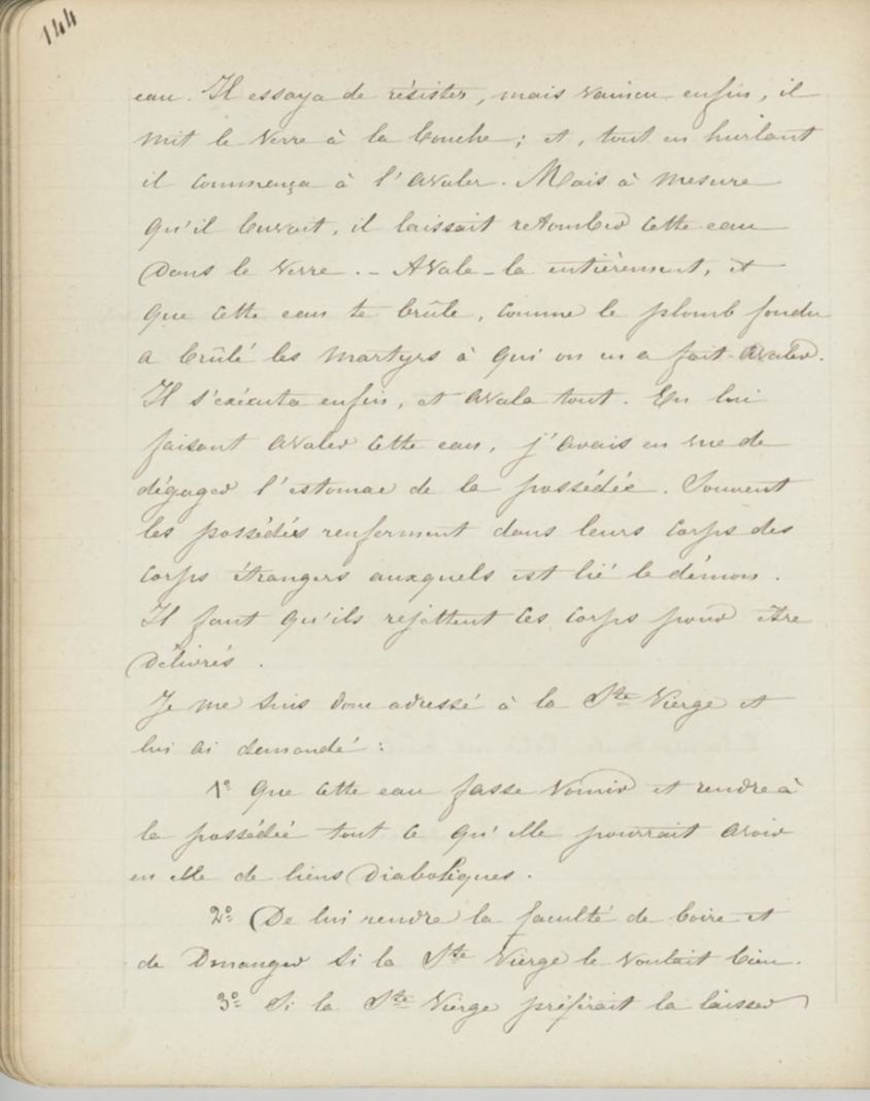 144
eau. Il essaya de résister, mais vaincu enfin, il
mit le verre à la bouche ; et, tout en hurlant
il commença à l'avaler. Mais à mesure
qu'il buvait, il laissait retomber cette eau
dans le verre. - Avale-la entièrement, et
que cette eau te brûle, comme le plomb fondu
a brûlé les martyrs à qui on en a fait avaler.
Il s'exécuta enfin, et avala tout. En lui
faisant avaler cette eau, j'avais en vue de
dégager l'estomac de la possédée. Souvent
les possédés renferment dans leurs corps des
corps étrangers auxquels est lié le démon.
Il faut qu'ils rejettent ces corps pour être
délivrés.
Je me suis donc adressé à la Ste Vierge et
lui ai demandé :
1º que cette eau fasse vomir et rendre à
la possédée tout ce qu'elle pourrait avoir
en elle de liens diaboliques.
2º De lui rendre la faculté de boire et
de manger si la Ste Vierge le voulait bien.
3º Si la Ste Vierge préférait la laisser